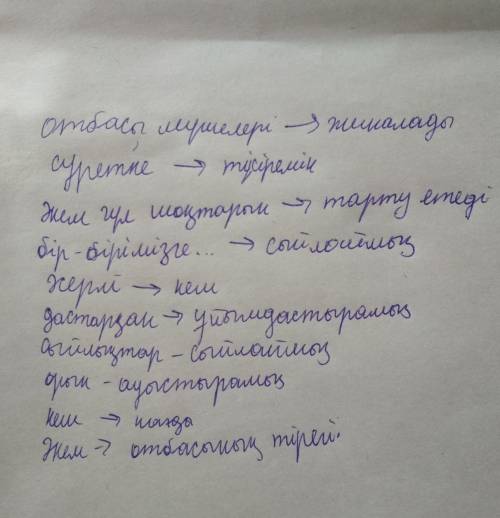 отбасы мүшелері → жиналады
суретке → түсіремін
Әкем гүл шоқтарын → тарту етеді
бір-бірімізге... → сыйлаймыз
Жерлі → кем
дастарқан → ұйымдастырамыз
сыйлықтар - сыйлаймыз
орын - ауыстырамыз
кеш →
Әкем → отбасының тірегі.